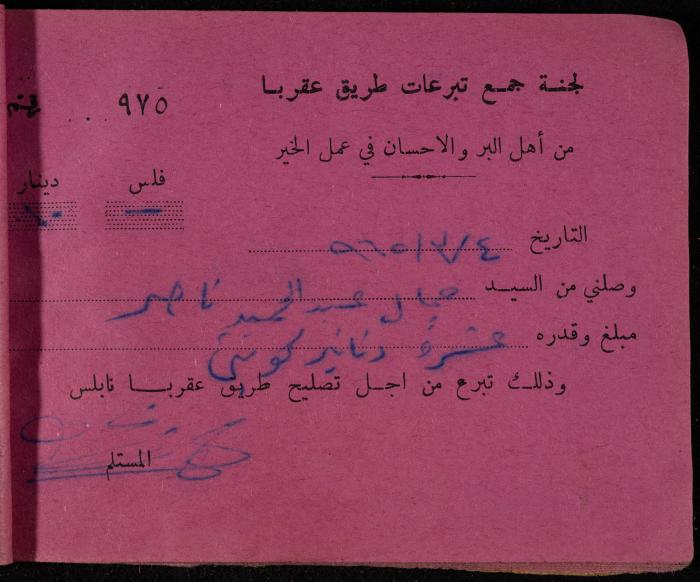 لجنة جمع تبرعات طريق عقربا
رقم ... ٩٧٥
من أهل البر والاحسان في عمل الخير
فلس دينار
— ١٠
التاريخ ٤/٣/٩٦٥
وصلني من السيد عبد الحميد ناصر
مبلغ وقدره عشرة دنانير كويتي
وذلك تبرع من اجل تصليح طريق عقربا نابلس
المستلم